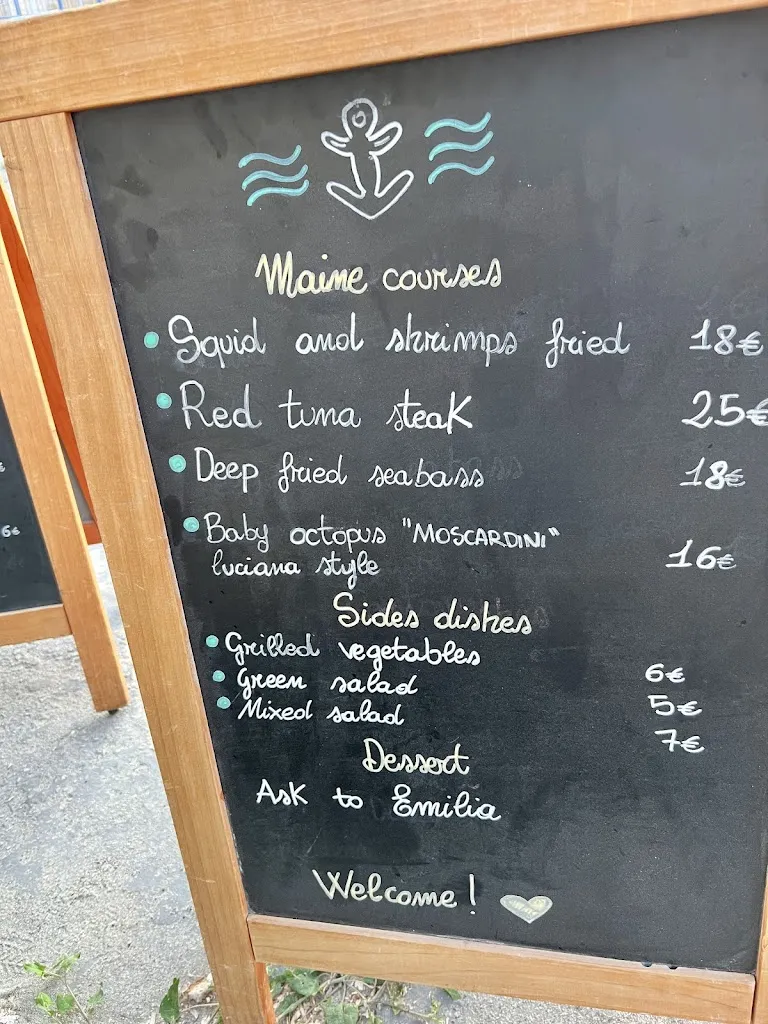 Maine courses
Squid and shrimps fried 18€
Red tuna steak 25€
Deep fried seabass 18€
Baby octopus "MOSCARDINI"
luciana style 16€
Sides dishes
Grilled vegetables 6€
Green salad 5€
Mixed salad 7€
Dessert
Ask to Emilia
Welcome!
6€